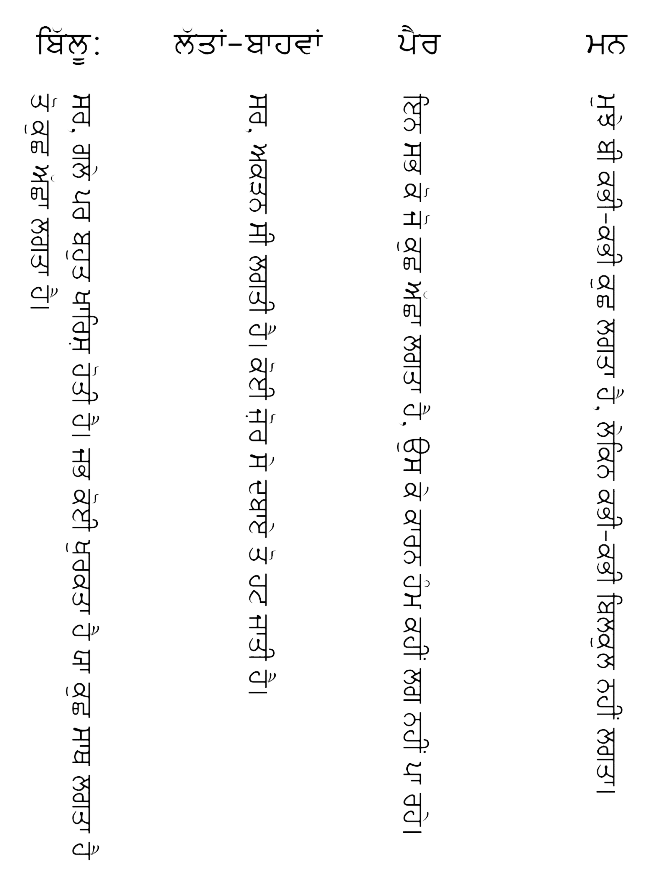 ਬਿੱਲੂ:
ਸਰ, ਗਲੇ ਪਰ ਬਹੁਤ ਖਾਰਿਸ਼ ਹੋਤੀ ਹੈ। ਜਬ ਕੋਈ ਖੁਰਕਤਾ ਹੈ ਯਾ ਕੁਛ ਸਾਥ ਲਗਤਾ ਹੈ
ਤੋ ਕੁਛ ਅੱਛਾ ਲਗਤਾ ਹੈ।
ਲੱਤਾਂ-ਬਾਹਵਾਂ
ਸਰ, ਅਕੜਨ ਸੀ ਲਗਤੀ ਹੈ। ਕੋਈ ਜ਼ੋਰ ਸੇ ਦਬਾਏ ਤੋ ਹਟ ਜਾਤੀ ਹੈ।
ਪੈਰ
ਇਨ ਸਭ ਕੋ ਜੋ ਕੁਛ ਅੱਛਾ ਲਗਤਾ ਹੈ, ਉਸ ਕੇ ਕਾਰਨ ਹੰਮ ਕਹੀਂ ਲਗ ਨਹੀਂ ਪਾ ਰਹੇ।
ਮਨ
ਮੁਝੇ ਬੀ ਕਭੀ-ਕਭੀ ਕੁਛ ਲਗਤਾ ਹੈ, ਲੇਕਿਨ ਕਭੀ-ਕਭੀ ਬਿਲਕੁਲ ਨਹੀਂ ਲਗਤਾ।